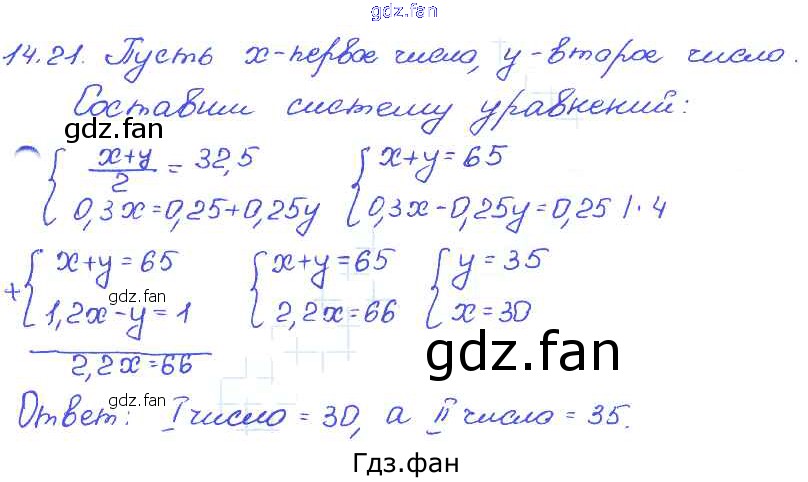 gdz.fan
14.21. Пусть x-первое число, y-второе число.
Составим систему уравнений:
gdz.fan
{ (x+y)/2 = 32,5 { x+y=65
0,3x=0,25+0,25y 0,3x-0,25y=0,25 /·4
+ { x+y=65 { x+y=65 { y=35
gdz.fan
1,2x-y=1 2,2x=66 x=30
gdz.fan
2,2x=66
gdz.fan
Ответ: I число = 30, а II число = 35.
Гдз.фан